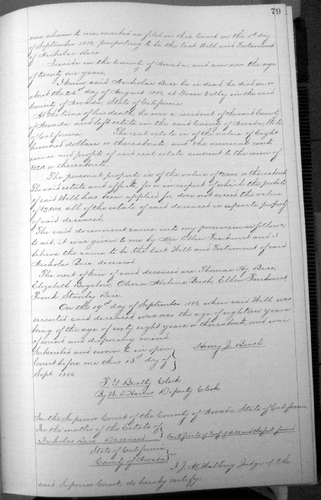 79
now shown to me, marked as filed in this Court on the 1st day
of September 1882, purporting to be the last Will and Testament
of Nicholas Bice
I reside in the County of Nevada, and am over the age
of twenty one years.
I knew said Nicholas Bice he is dead, he died on or
about the 26th day of August 1882, at Penn Valley in the said
County of Nevada State of California
At the time of his death, he was a resident of the said County
of Nevada and left estate in the said County of Nevada, State
of California The real estate is of the value of Eight
thousand dollars or thereabouts and the annual rents
issues and profits of said real estate amount to the sum of
or thereabouts.
The personal property is of the value of or thereabouts
The said estate and effects for or in respect of which the probate
of said Will has been applied for does not exceed the value
of all of the estate of said deceased is separate property
of said deceased.
The said document came into my possession as follows,
to wit: it was given to me by Mrs. Ellen and I
believe the same to be the last Will and Testament of said
Nicholas Bice deceased
The next of kin of said deceased are Thomas Hy. Bice,
Elizabeth Bice, Ellen
Frank Stanley Bice
On the 19th day of September 1882, when said Will was
executed said deceased was over the age of eighteen years
being of the age of sixty eight years or thereabouts, and was
of sound and disposing mind.
Subscribed and sworn to in open
Court before me this 13th day of
Sept 1882
Henry J.
F. G. Beatty Clerk
By Deputy Clerk
In the Superior Court of the County of Nevada State of California
In the matter of the Estate of
Nicholas Bice Deceased
Certificate of Proof of Will and the facts found
State of California
County of Nevada
I, J. Walling Judge of the
said Superior Court do hereby certify: